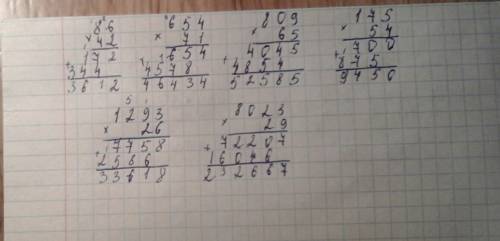 86
× 42
172
+ 344
3612
654
× 71
654
+ 4578
46434
809
× 65
4045
+ 4854
52585
175
× 54
700
+ 875
9450
1293
× 26
7758
+ 2586
33618
8023
× 29
72207
+ 16046
232667